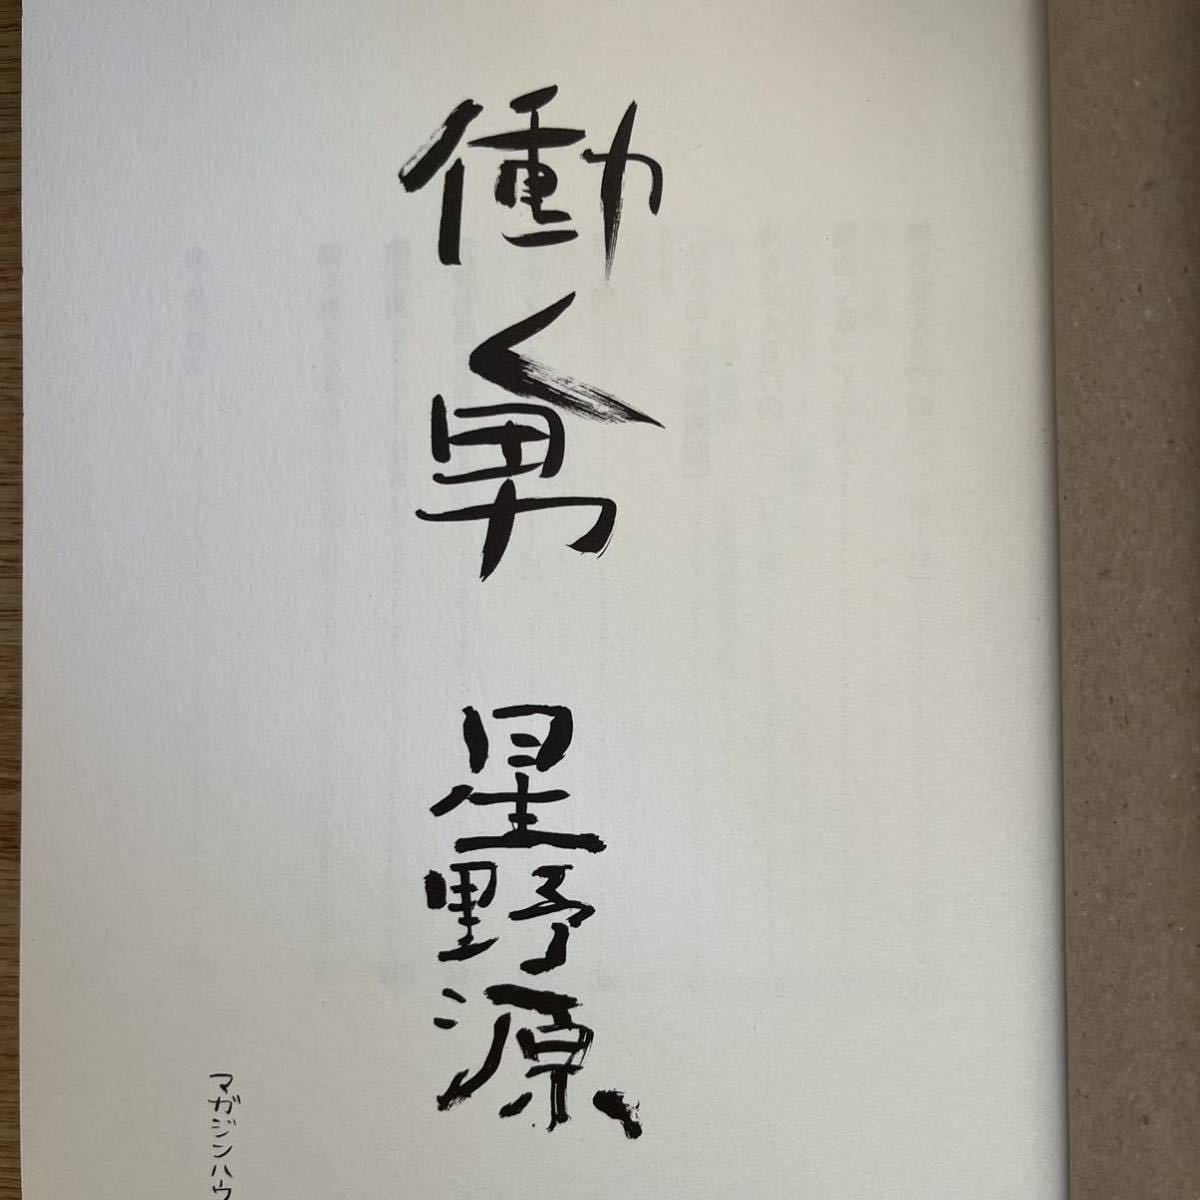 働く男
星野源
マガジンハウ